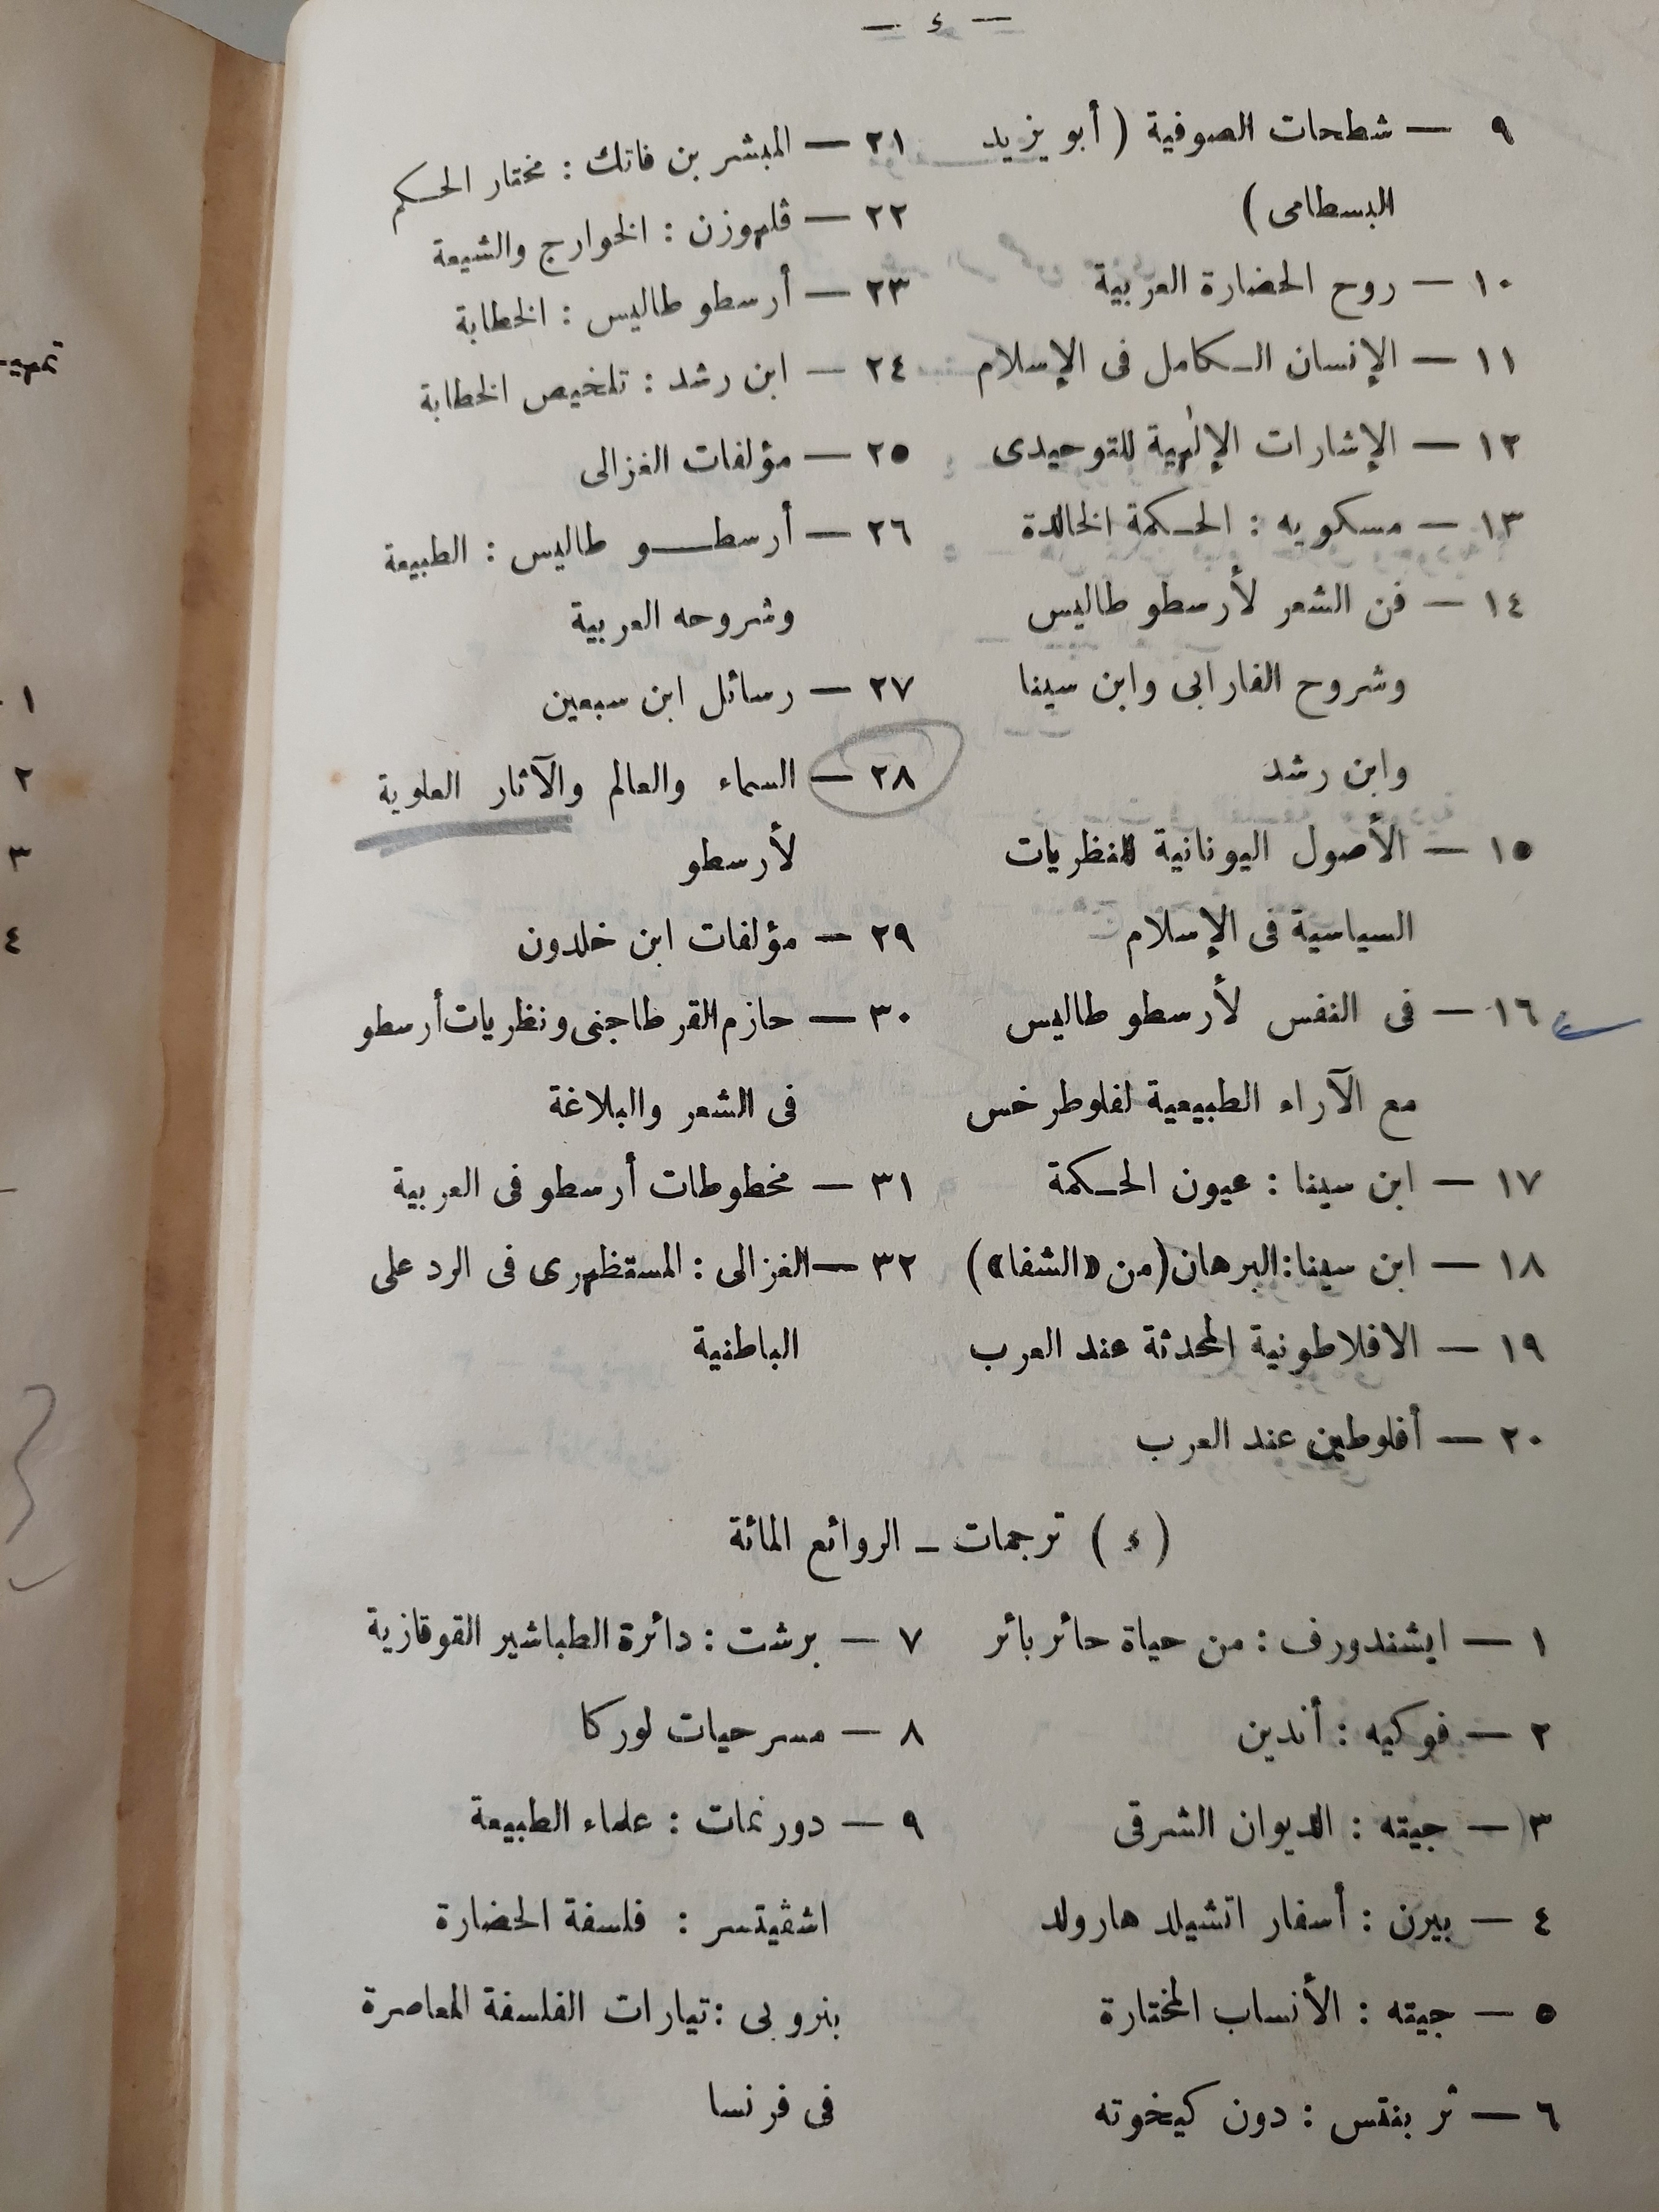 — ٤ —
٩ — شطحات الصوفية ( أبو يزيد
البسطامى )
١٠ — روح الحضارة العربية
١١ — الإنسان الكامل فى الإسلام
١٢ — الإشارات الإلهية للتوحيدى
١٣ — مسكويه : الحكمة الخالدة
١٤ — فن الشعر لأرسطو طاليس
وشروح الفارابى وابن سينا
وابن رشد
١٥ — الأصول اليونانية للنظريات
السياسية فى الإسلام
١٦ — فى النفس لأرسطو طاليس
مع الآراء الطبيعية لفلوطرخس
١٧ — ابن سينا : عيون الحكمة
١٨ — ابن سينا : البرهان (من «الشفا»)
١٩ — الافلاطونية المحدثة عند العرب
٢٠ — أفلوطين عند العرب
٢١ — المبشر بن فاتك : مختار الحكم
٢٢ — ڤلهوزن : الخوارج والشيعة
٢٣ — أرسطو طاليس : الخطابة
٢٤ — ابن رشد : تلخيص الخطابة
٢٥ — مؤلفات الغزالى
٢٦ — أرسطو طاليس : الطبيعة
وشروحه العربية
٢٧ — رسائل ابن سبعين
٢٨ — السماء والعالم والآثار العلوية
لأرسطو
٢٩ — مؤلفات ابن خلدون
٣٠ — حازم القرطاجنى ونظريات أرسطو
فى الشعر والبلاغة
٣١ — مخطوطات أرسطو فى العربية
٣٢ — الغزالى : المستظهرى فى الرد على
الباطنية
( ء ) ترجمات - الروائع المائة
١ — ايشندورف : من حياة حائر بائر
٢ — فوكيه : أندين
٣ — جيته : الديوان الشرقى
٤ — بيرن : أسفار اتشيلد هارولد
٥ — جيته : الأنساب المختارة
٦ — ثربنتس : دون كيخوته
٧ — برشت : دائرة الطباشير القوقازية
٨ — مسرحيات لوركا
٩ — دورنمات : علماء الطبيعة
اشڤيتسر : فلسفة الحضارة
بنروبى : تيارات الفلسفة المعاصرة
فى فرنسا
١
٢
٣
٤